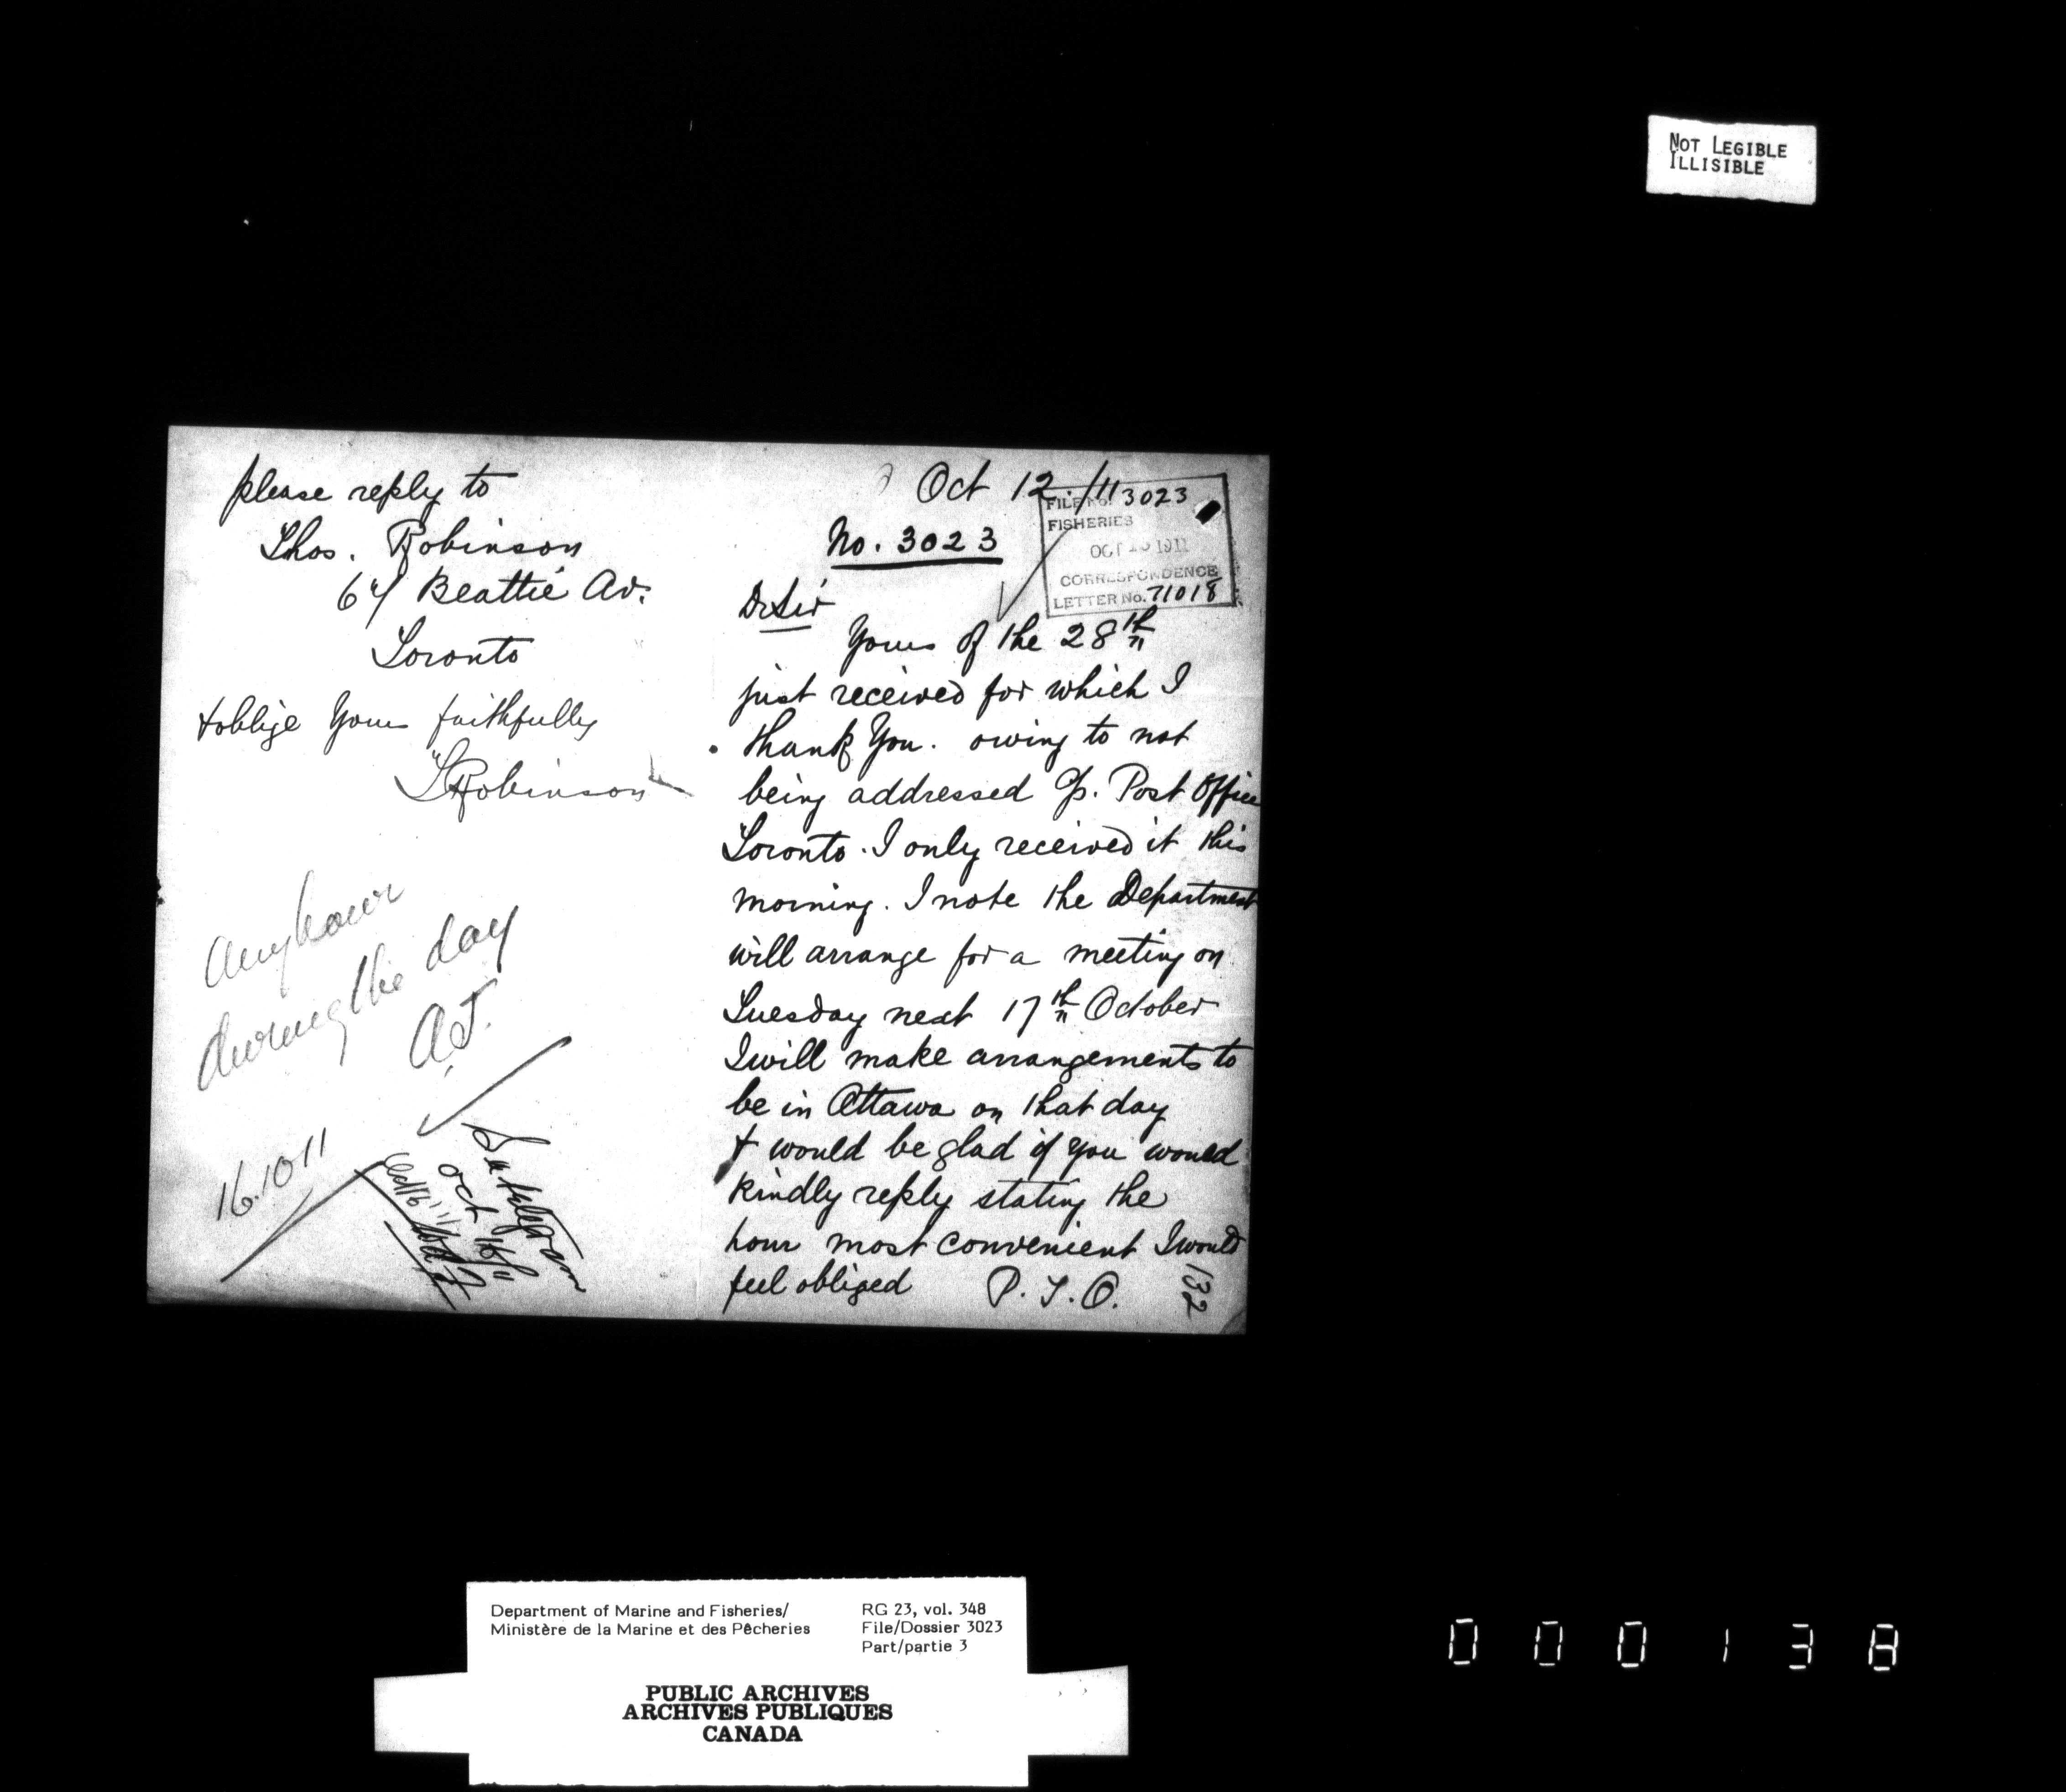 NOT LEGIBLE
ILLISIBLE
Oct 12/11
No. 3023
FILE No. 3023
FISHERIES
OCT 1911
CORRESPONDENCE
LETTER No. 71018
Dr Sir
Yours of the 28th
just received for which I
thank You. owing to not
being addressed G. Post Office
Toronto. I only received it this
morning. I note the Department
will arrange for a meeting on
Tuesday next 17th October
I will make arrangements to
be in Ottawa on that day
& would be glad if you would
kindly reply stating the
hour most convenient I would
feel obliged P.T.O.
132
please reply to
Thos. Robinson
Beattie Av.
Toronto
& oblige Yours faithfully
T Robinson
Any hour
during the day
A.J.
16.10 11
telegram
Oct 16/11
Department of Marine and Fisheries/
Ministère de la Marine et des Pêcheries
RG 23, vol. 348
File/Dossier 3023
Part/partie 3
PUBLIC ARCHIVES
ARCHIVES PUBLIQUES
CANADA
000138